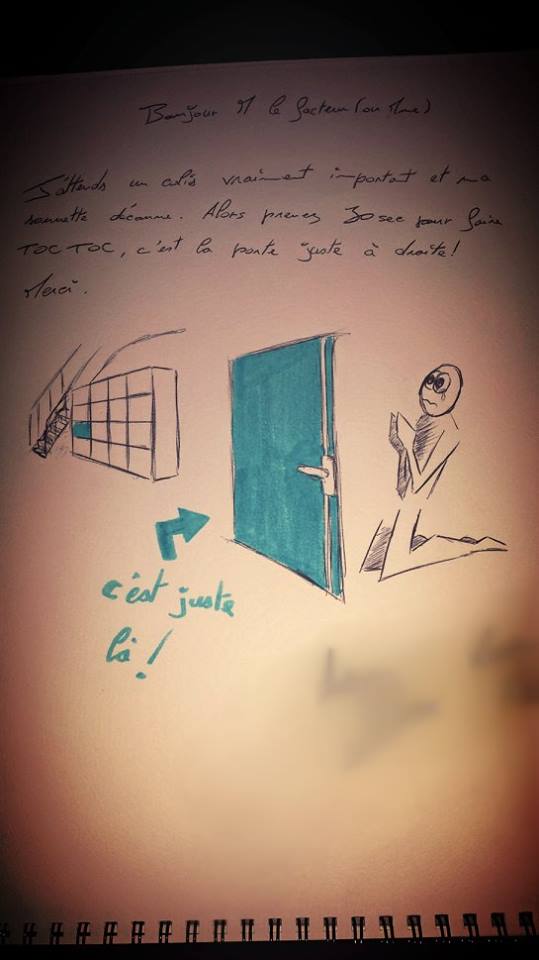 Bonjour M le facteur (ou Mme)
J'attends un colis vraiment important et ma
sonnette déconne. Alors prenez 30 sec pour faire
TOC TOC, c'est la porte juste à droite!
Merci.
c'est juste
là!